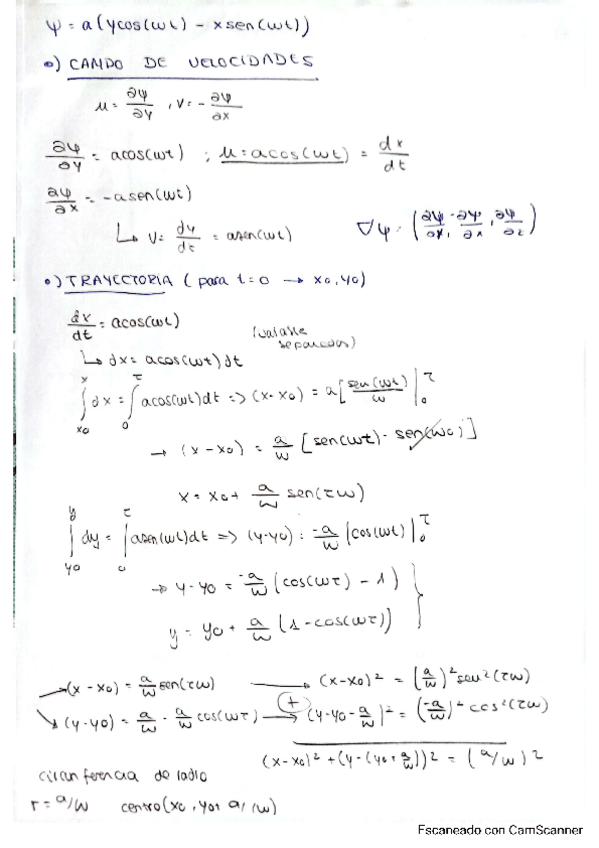 ψ = a(ycos(ωt) - xsen(ωt))
•) CAMPO DE VELOCIDADES
u = ∂ψ/∂y , v = - ∂ψ/∂x
∂ψ/∂y = acos(ωt) ; u = acos(ωt) = dx/dt
∂ψ/∂x = -asen(ωt)
↳ v = dy/dt = asen(ωt)
∇ψ = (∂ψ/∂y, -∂ψ/∂x, ∂ψ/∂z)
•) TRAYECTORIA (para t=0 → x0, y0)
dx/dt = acos(ωt)
↳ dx = acos(ωt)dt
∫_{x0}^{x} dx = ∫_{0}^{τ} acos(ωt)dt => (x-x0) = a[sen(ωt)/ω |_{0}^{τ}
→ (x-x0) = a/ω [sen(ωτ) - sen(ω0)]
x = x0 + a/ω sen(τω)
∫_{y0}^{y} dy = ∫_{0}^{τ} asen(ωt)dt => (y-y0) = -a/ω |cos(ωt)|_{0}^{τ}
→ y-y0 = -a/ω (cos(ωτ) - 1)
y = y0 + a/ω (1 - cos(ωτ))
(x-x0) = a/ω sen(τω) → (x-x0)² = (a/ω)² sen²(τω)
(y-y0) = a/ω - a/ω cos(ωτ) → (+) (y-y0-a/ω)² = (-a/ω)² cos²(τω)
(x-x0)² + (y-(y0+a/ω))² = (a/ω)²
circunferencia de radio
r = a/ω centro(x0, y0+a/ω)
Escaneado con CamScanner